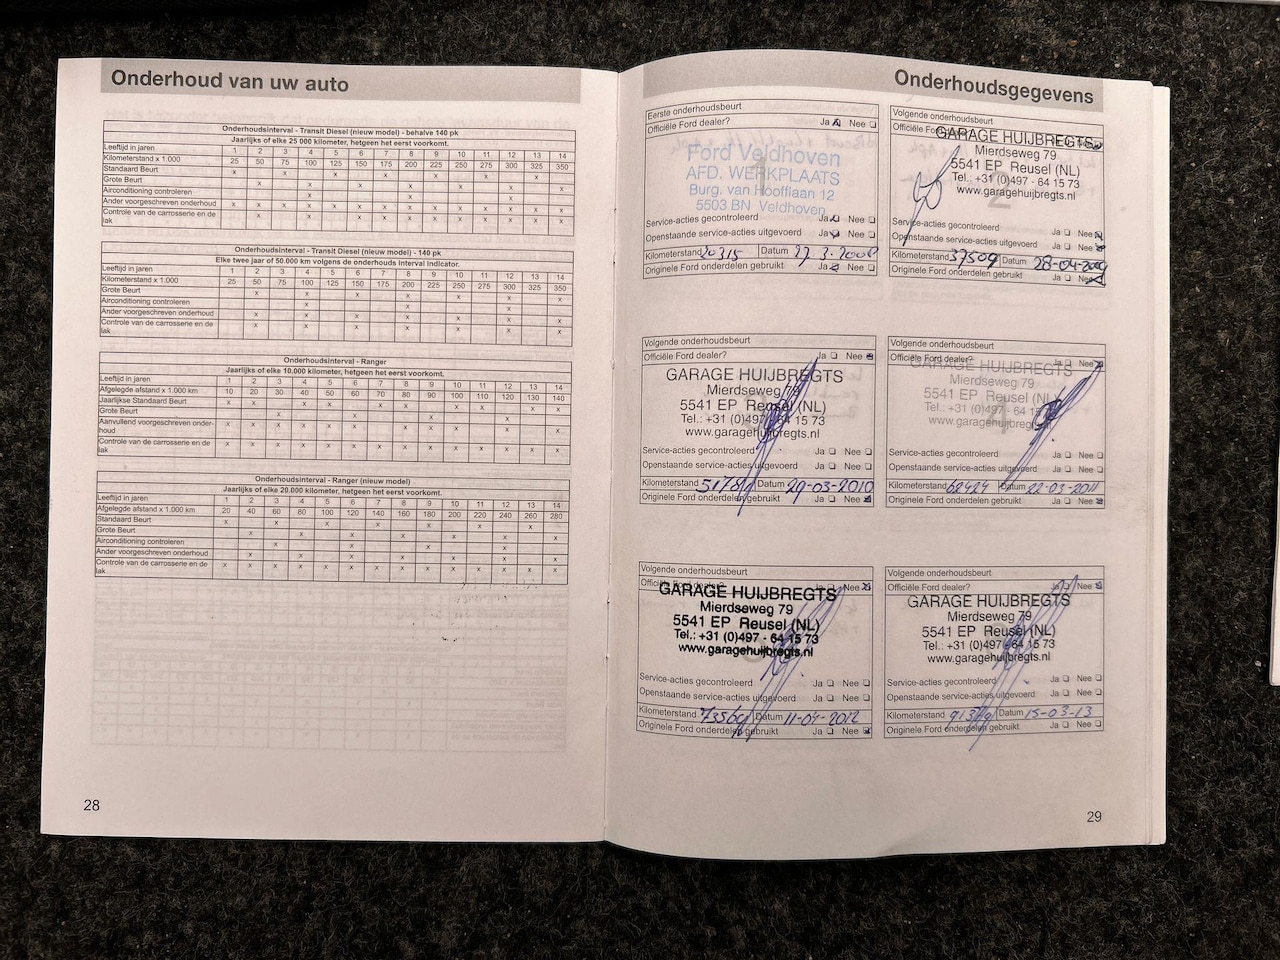 Onderhoud van uw auto
Onderhoudsinterval - Transit Diesel (nieuw model) - behalve 140 pk
Jaarlijks of elke 25 000 kilometer, hetgeen het eerst voorkomt.
Leeftijd in jaren 1 2 3 4 5 6 7 8 9 10 11 12 13 14
Kilometerstand x 1.000 25 50 75 100 125 150 175 200 225 250 275 300 325 350
Standaard Beurt x x x x x x x
Grote Beurt x x x x x x x
Airconditioning controleren x x x
Ander voorgeschreven onderhoud x x x x x x x x x x x x x x
Controle van de carrosserie en de lak x x x x x x x
Onderhoudsinterval - Transit Diesel (nieuw model) - 140 pk
Elke twee jaar of 50.000 km volgens de onderhouds interval indicator.
Leeftijd in jaren 1 2 3 4 5 6 7 8 9 10 11 12 13 14
Kilometerstand x 1.000 25 50 75 100 125 150 175 200 225 250 275 300 325 350
Grote Beurt x x x x x x x
Airconditioning controleren x x x
Ander voorgeschreven onderhoud x x x
Controle van de carrosserie en de lak x x x x x x x
Onderhoudsinterval - Ranger
Jaarlijks of elke 10.000 kilometer, hetgeen het eerst voorkomt.
Leeftijd in jaren 1 2 3 4 5 6 7 8 9 10 11 12 13 14
Afgelegde afstand x 1.000 km 10 20 30 40 50 60 70 80 90 100 110 120 130 140
Jaarlijkse Standaard Beurt x x x x x x x x x x
Grote Beurt x x x x
Aanvullend voorgeschreven onder-
houd
Controle van de carrosserie en de lak x x x x x x x x x x x x x x
Onderhoudsinterval - Ranger (nieuw model)
Jaarlijks of elke 20.000 kilometer, hetgeen het eerst voorkomt.
Leeftijd in jaren 1 2 3 4 5 6 7 8 9 10 11 12 13 14
Afgelegde afstand x 1.000 km 20 40 60 80 100 120 140 160 180 200 220 240 260 280
Standaard Beurt x x x x x x x
Grote Beurt x x x x x x x
Airconditioning controleren x x x x
Ander voorgeschreven onderhoud
Controle van de carrosserie en de lak x x x x x x x x x x x x x x
28
Onderhoudsgegevens
Eerste onderhoudsbeurt
Officiële Ford dealer? Ja Nee
1
Ford Veldhoven
AFD. WERKPLAATS
Burg. van Hooflaan 12
5503 BN Veldhoven
Service-acties gecontroleerd Ja Nee
Openstaande service-acties uitgevoerd Ja Nee
Kilometerstand 20315 Datum 27.3.2008
Originele Ford onderdelen gebruikt Ja Nee
Volgende onderhoudsbeurt
Officiële Ford
2
GARAGE HUIJBREGTS
Mierdseweg 79
5541 EP Reusel (NL)
Tel.: +31 (0)497 - 64 15 73
www.garagehuijbregts.nl
Service-acties gecontroleerd Ja Nee
Openstaande service-acties uitgevoerd Ja Nee
Kilometerstand 37509 Datum 28-04-2009
Originele Ford onderdelen gebruikt Ja Nee
Volgende onderhoudsbeurt
Officiële Ford dealer? Ja Nee
GARAGE HUIJBREGTS
Mierdseweg 79
5541 EP Reusel (NL)
Tel.: +31 (0)497 - 64 15 73
www.garagehuijbregts.nl
Service-acties gecontroleerd Ja Nee
Openstaande service-acties uitgevoerd Ja Nee
Kilometerstand Datum 29-03-2010
Originele Ford onderdelen gebruikt Ja Nee
Volgende onderhoudsbeurt
Officiële Ford dealer? Ja Nee
4
GARAGE HUIJBREGTS
Mierdseweg 79
5541 EP Reusel (NL)
Tel.: +31 (0)497 - 64 15 73
www.garagehuijbregts.nl
Service-acties gecontroleerd Ja Nee
Openstaande service-acties uitgevoerd Ja Nee
Kilometerstand 62424 Datum 22-03-2011
Originele Ford onderdelen gebruikt Ja Nee
Volgende onderhoudsbeurt
Officiële Ford dealer? Ja Nee
GARAGE HUIJBREGTS
Mierdseweg 79
5541 EP Reusel (NL)
Tel.: +31 (0)497 - 64 15 73
www.garagehuijbregts.nl
Service-acties gecontroleerd Ja Nee
Openstaande service-acties uitgevoerd Ja Nee
Kilometerstand 73569 Datum 11-04-2012
Originele Ford onderdelen gebruikt Ja Nee
Volgende onderhoudsbeurt
Officiële Ford dealer? Ja Nee
GARAGE HUIJBREGTS
Mierdseweg 79
5541 EP Reusel (NL)
Tel.: +31 (0)497 - 64 15 73
www.garagehuijbregts.nl
Service-acties gecontroleerd Ja Nee
Openstaande service-acties uitgevoerd Ja Nee
Kilometerstand Datum 15-03-13
Originele Ford onderdelen gebruikt Ja Nee
29